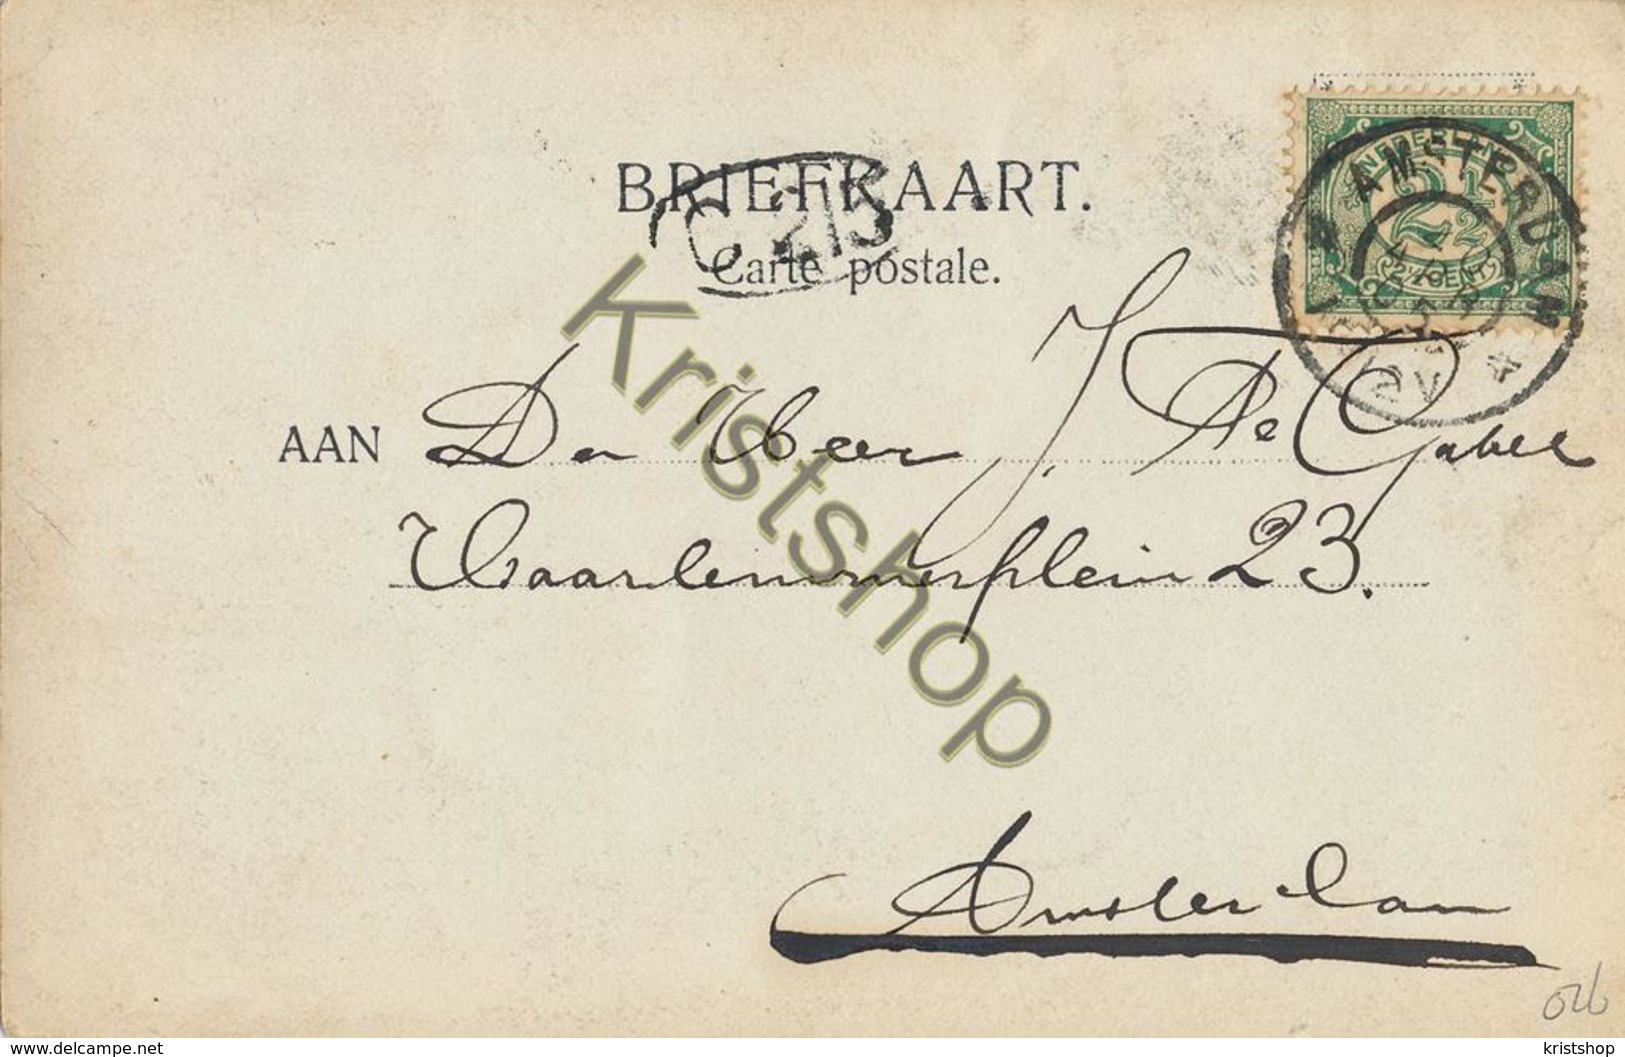 BRIEFKAART.
Carte postale.
C 215
NEDERLAND
2½
2½ CENT
AMSTERDAM
AAN Den Heer J. De Gabel
Haarlemmerplein 23.
Amsterdam
Kristshop
026
www.delcampe.net
kristshop